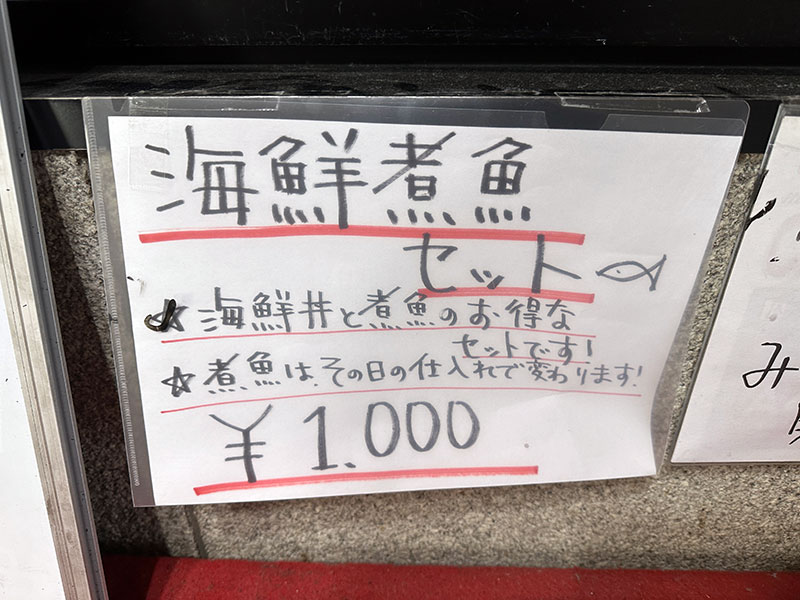 海鮮煮魚
セット
☆海鮮丼と煮魚のお得な
セットです!
☆煮魚は、その日の仕入れで変わります!
¥1.000
み